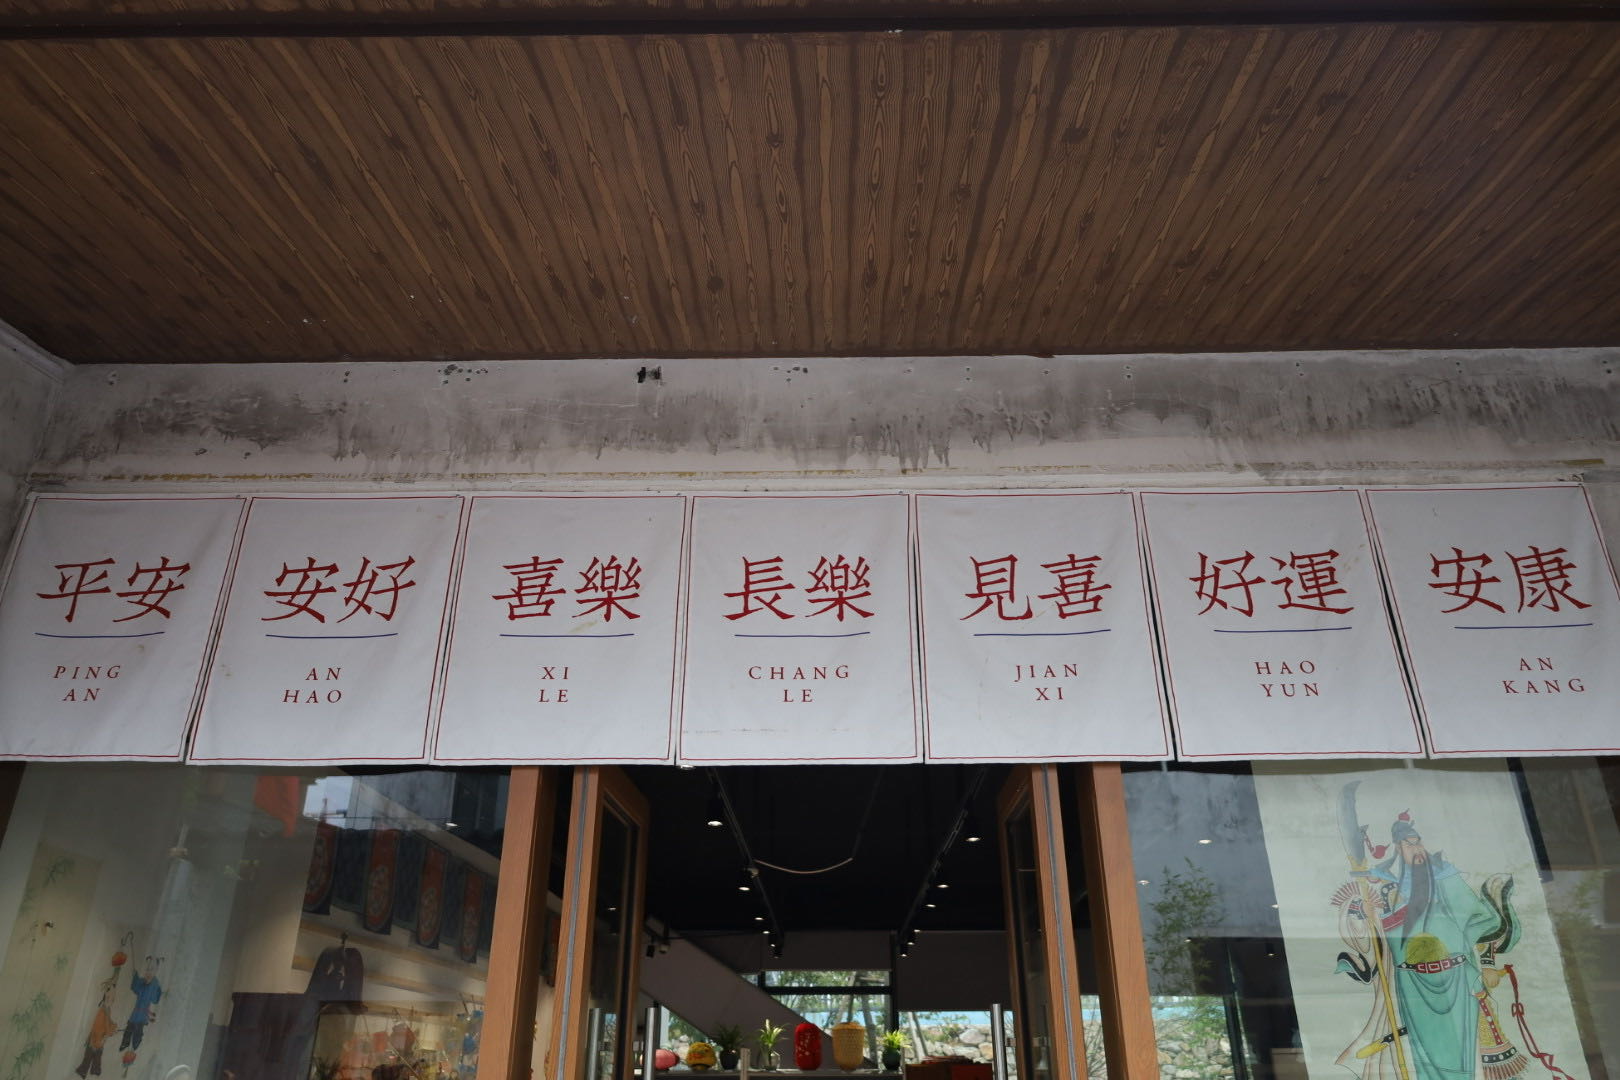 平安
PING
AN
安好
AN
HAO
喜樂
XI
LE
長樂
CHANG
LE
見喜
JIAN
XI
好運
HAO
YUN
安康
AN
KANG